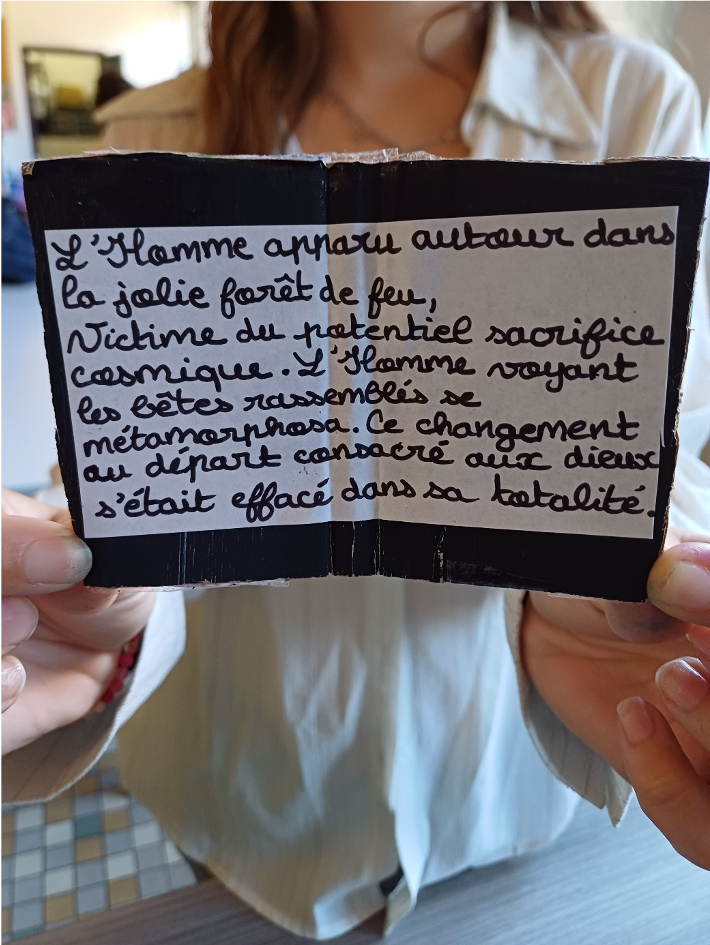 L'Homme apparu autour dans
la jolie forêt de feu,
Victime du potentiel sacrifice
cosmique. L'Homme voyant
les bêtes rassemblés se
métamorphosa. Ce changement
au départ consacré aux dieux
s'était effacé dans sa totalité.